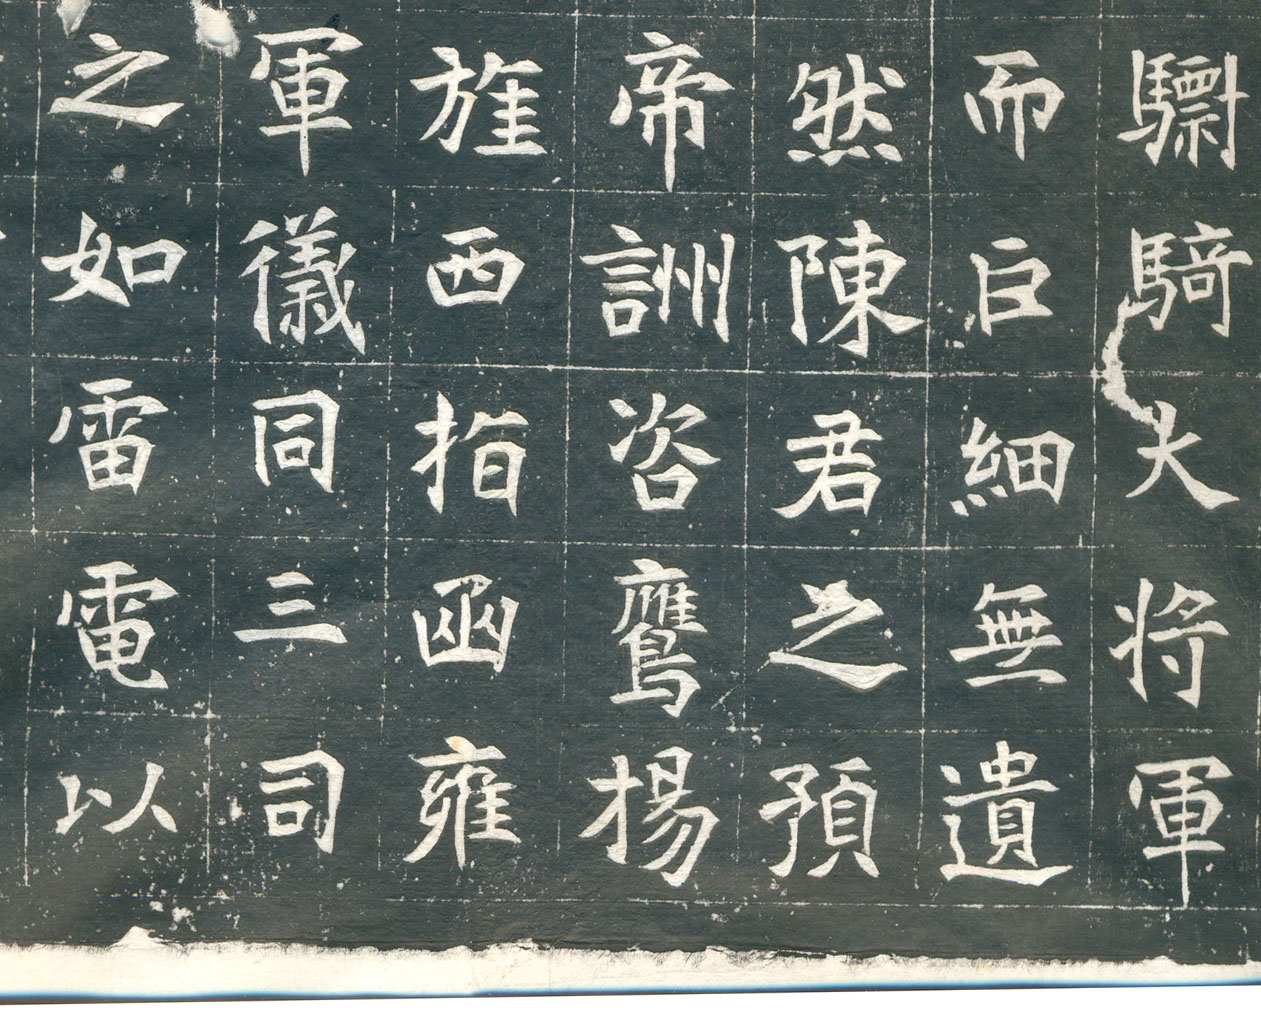 驃騎大将軍
而巨細無遺
然陳君之預
帝詶咨鷹揚
旌西指函雍
軍儀同三司
之如雷電以